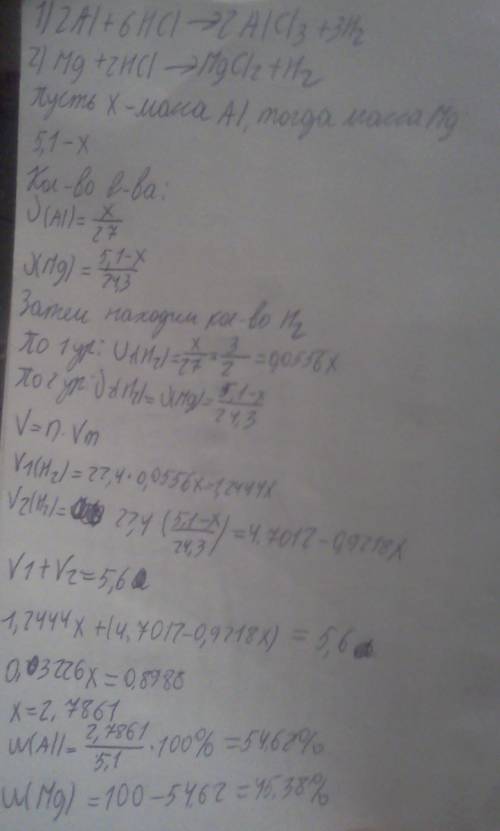 1) 2Al + 6HCl → 2AlCl3 + 3H2
2) Mg + 2HCl → MgCl2 + H2
Пусть X - масса Al, тогда масса Mg
5,1-x
Кол-во в-ва:
υ(Al) = x/27
υ(Mg) = 5,1-x/24,3
Затем находим кол-во H2
По 1 ур: υ1(H2) = x/27 * 3/2 = 0,0556x
По 2 ур: υ2(H2) = υ(Mg) = 5,1-x/24,3
V = n · Vm
V1(H2) = 22,4 · 0,0556x = 1,2444x
V2(H2) = 22,4 (5,1-x/24,3) = 4.7012 - 0,9218x
V1 + V2 = 5,6
1,2444x + (4,7012 - 0,9218x) = 5,6
0,03226x = 0,8988
x = 2,7861
ω(Al) = 2,7861/5,1 · 100% = 54.62%
ω(Mg) = 100 - 54,62 = 45.38%